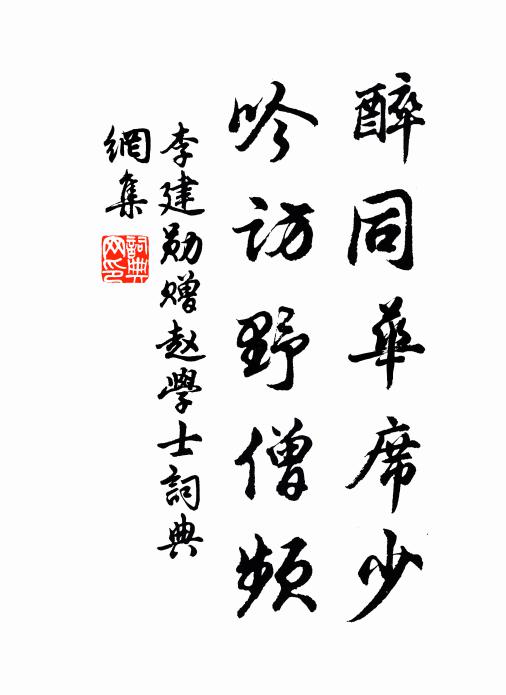 醉同華席少
吟訪野僧頻
李建勛贈赵學士詞典
網集
詞典
网印